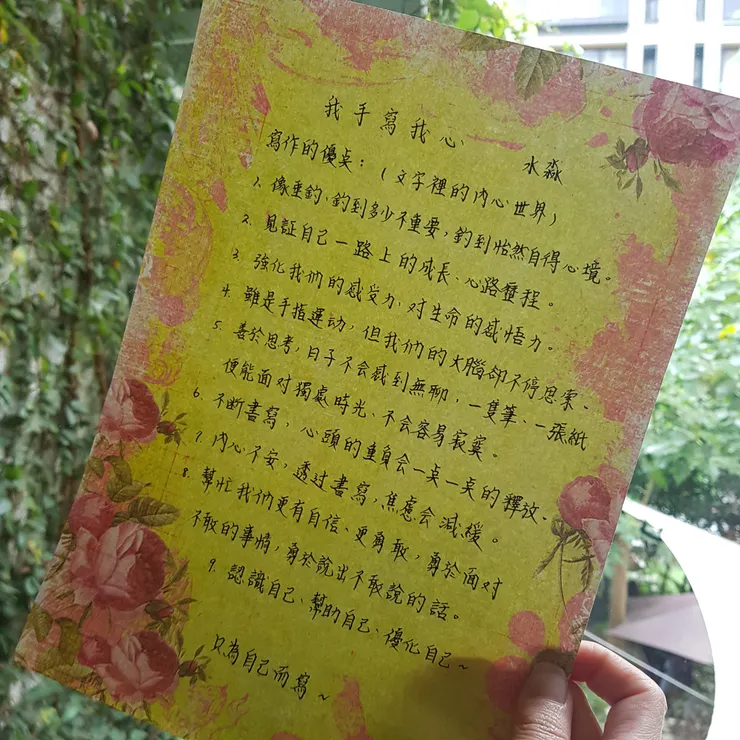 我手寫我心
水淼
寫作的優点：(文字裡的內心世界)
1. 像垂釣、釣到多少不重要，釣到怡然自得心境。
2. 見証自己一路上的成長、心路歷程。
3. 強化我們的感受力、对生命的感悟力。
4. 雖是手指運动，但我們的大腦卻不停思索、
5. 善於思考，日子不会感到無聊，一隻筆、一張紙
便能面对獨處時光、不会容易寂寞。
6. 不断書寫，心頭的重負会一点一点的釋放、
7. 內心不安，透过書寫，焦慮会減緩。
8. 幫忙我們更有自信、更勇敢，勇於面对
不敢的事情，勇於說出不敢說的話。
9. 認識自己、幫助自己、優化自己~
只為自己而寫~